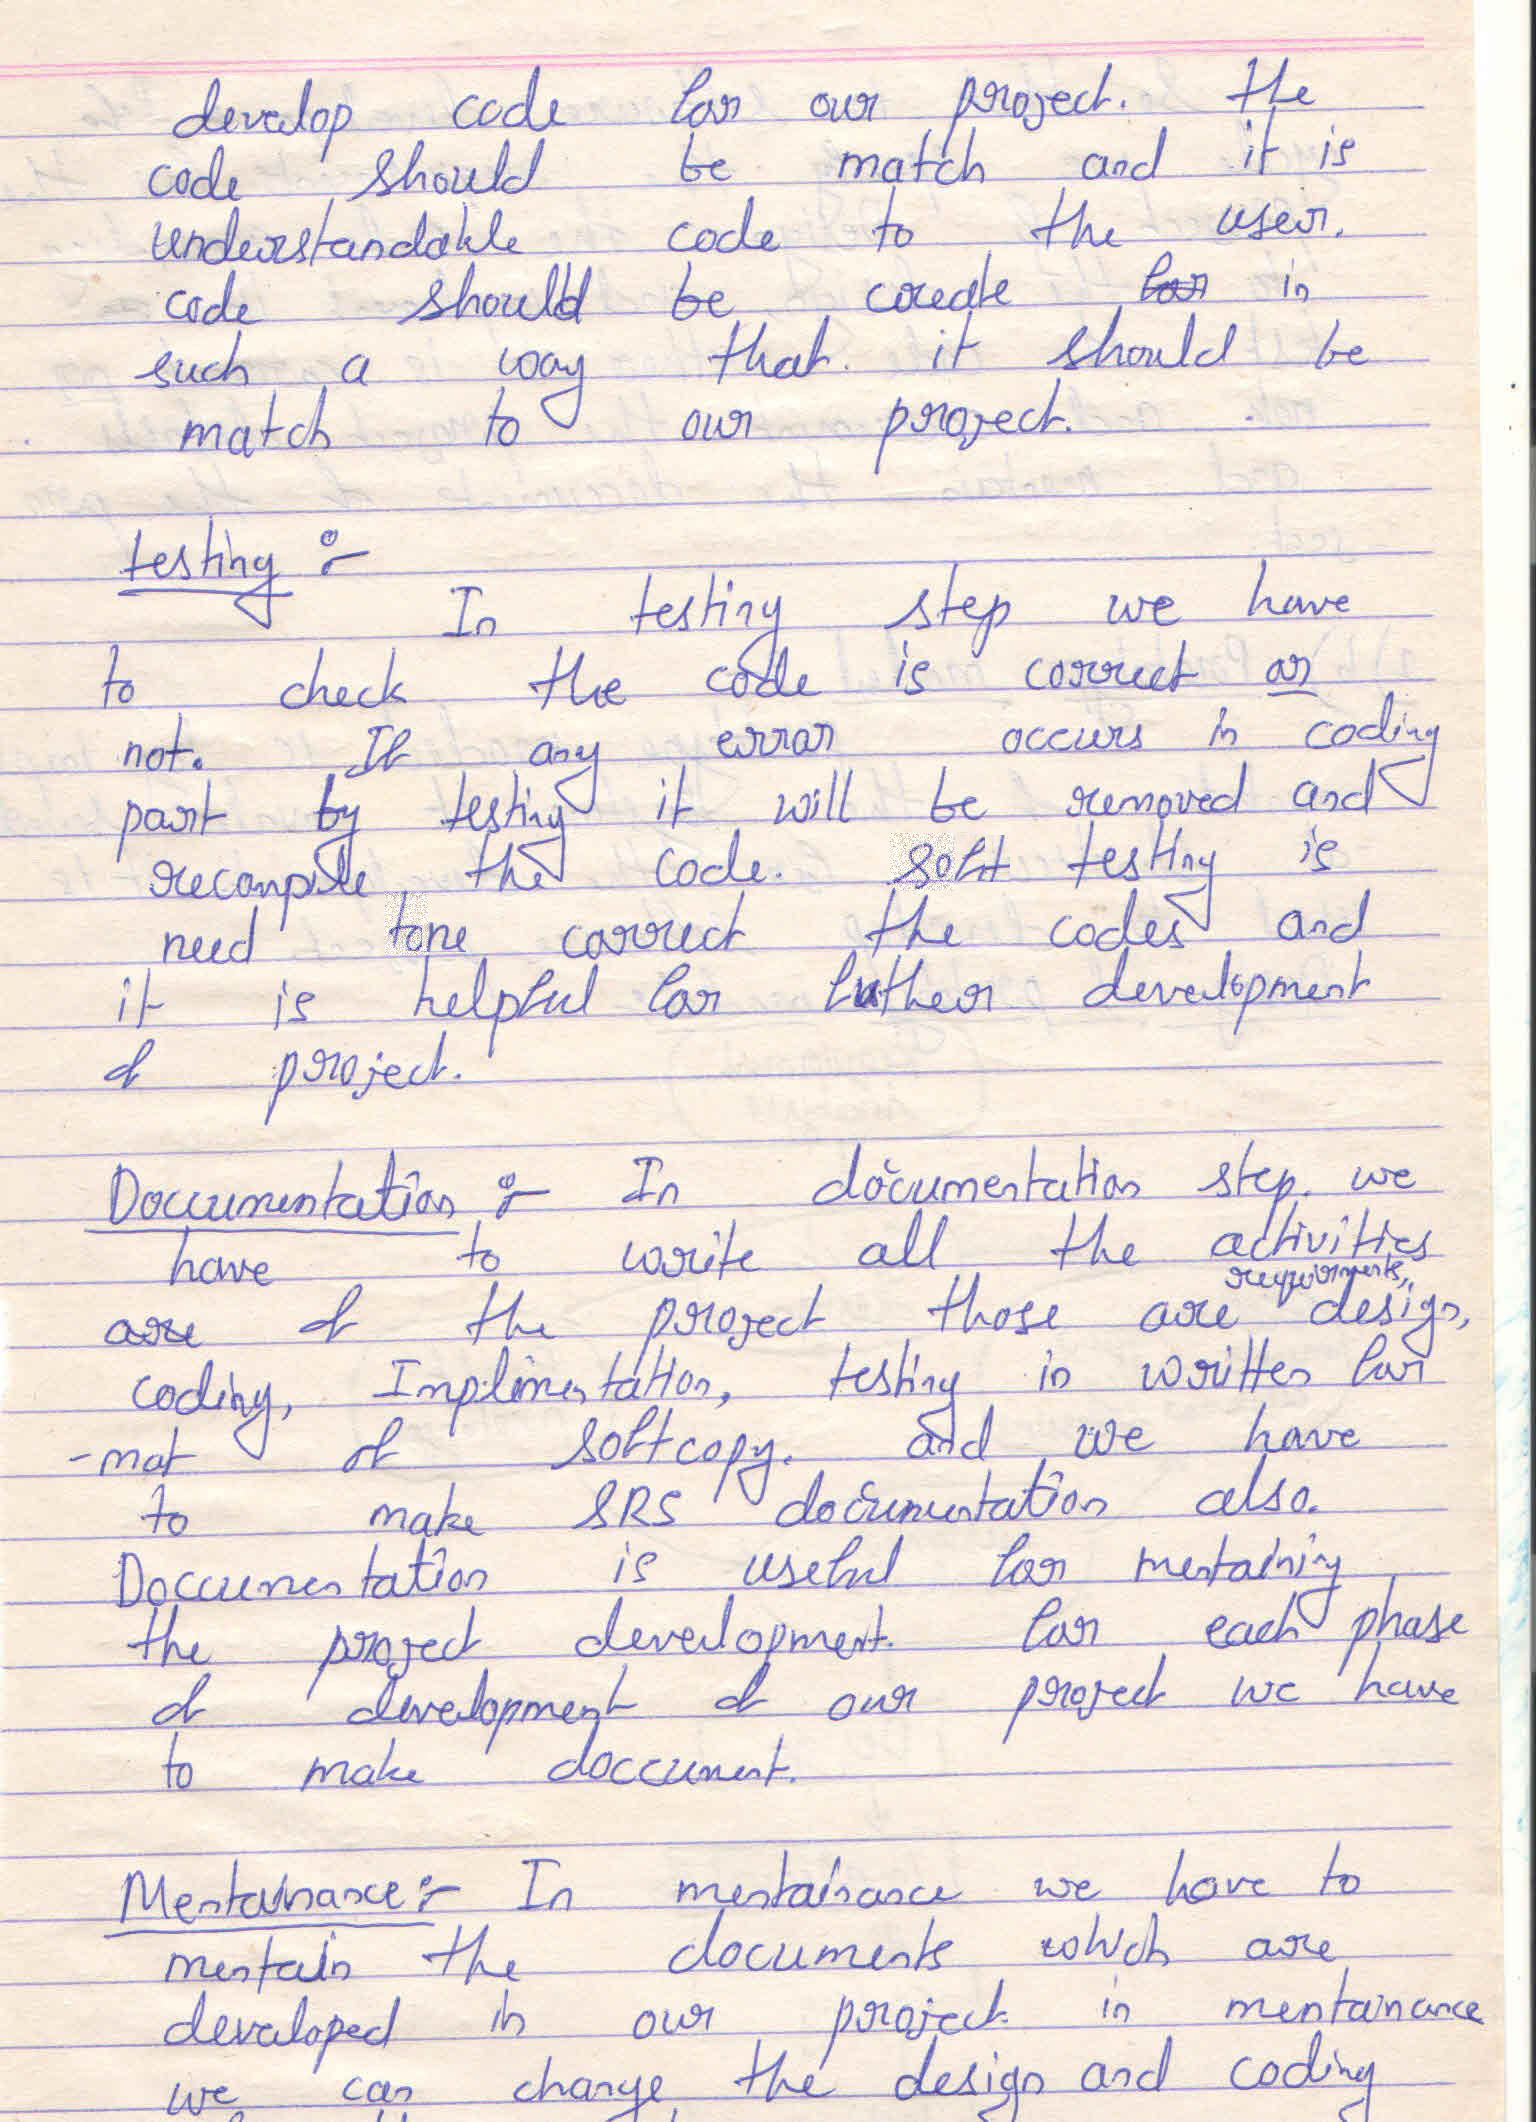 develop code for our project. the
code should be match and it is
understandable code to the user.
code should be create for in
such a way that. it should be
match to our project.
testing :-
In testing step we have
to check the code is correct or
not. If any error occurs in coding
part by testing it will be removed and
recompile the code. soft testing is
need tone correct the codes and
it is helpful for futher development
of project.
Doccumentation :- In documentation step. we
have to write all the activities
requirments,
are of the project those are design,
coding, Implimentation, testing in written for
-mat of softcopy. and we have
to make SRS documentation also.
Doccumentation is useful for mentaining
the project development. for each phase
of development of our project we have
to make doccument.
Mentainance :- In mentainance we have to
mentain the documents which are
developed in our project in mentainance
we can change the design and coding